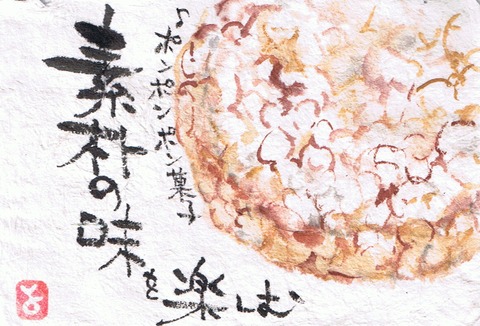 ♪ポンポンポン菓子
素朴の味を楽しむ